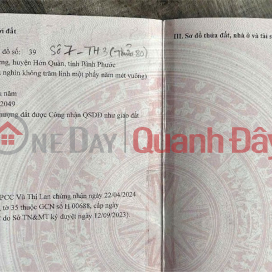 ời đất
III. Sơ đồ thửa đất, nhà ở và tài
đồ số: 39 Số 7-TH3 (Thửa 80)
ơng, huyện Hớn Quản, tỉnh Bình Phước
nghìn không trăm linh một phẩy năm mét vuông)
u năm
2049
nhượng đất được Công nhận QSDĐ như giao đất
ONEDAY Quanh Đây
PCC Vũ Thị Lan chứng nhận ngày 22/04/2024
, tờ 35 thuộc GCN số H 00688, cấp ngày
do Sở TN&MT ký duyệt ngày 12/09/2023).